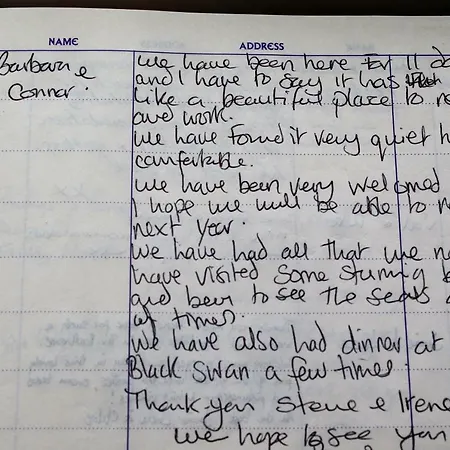 NAME ADDRESS
Barbara &
Connor.
We have been here for 11 da
and I have to say it has
like a beautiful place to re
and work.
We have found it very quiet h
comfortable.
We have been very welcomed
I hope we will be able to re
next year.
We have had all that we ne
have visited some stunning b
and been to see the seals a
at times.
We have also had dinner at
Black Swan a few times.
Thank-you Steve & Irene
We hope to see you